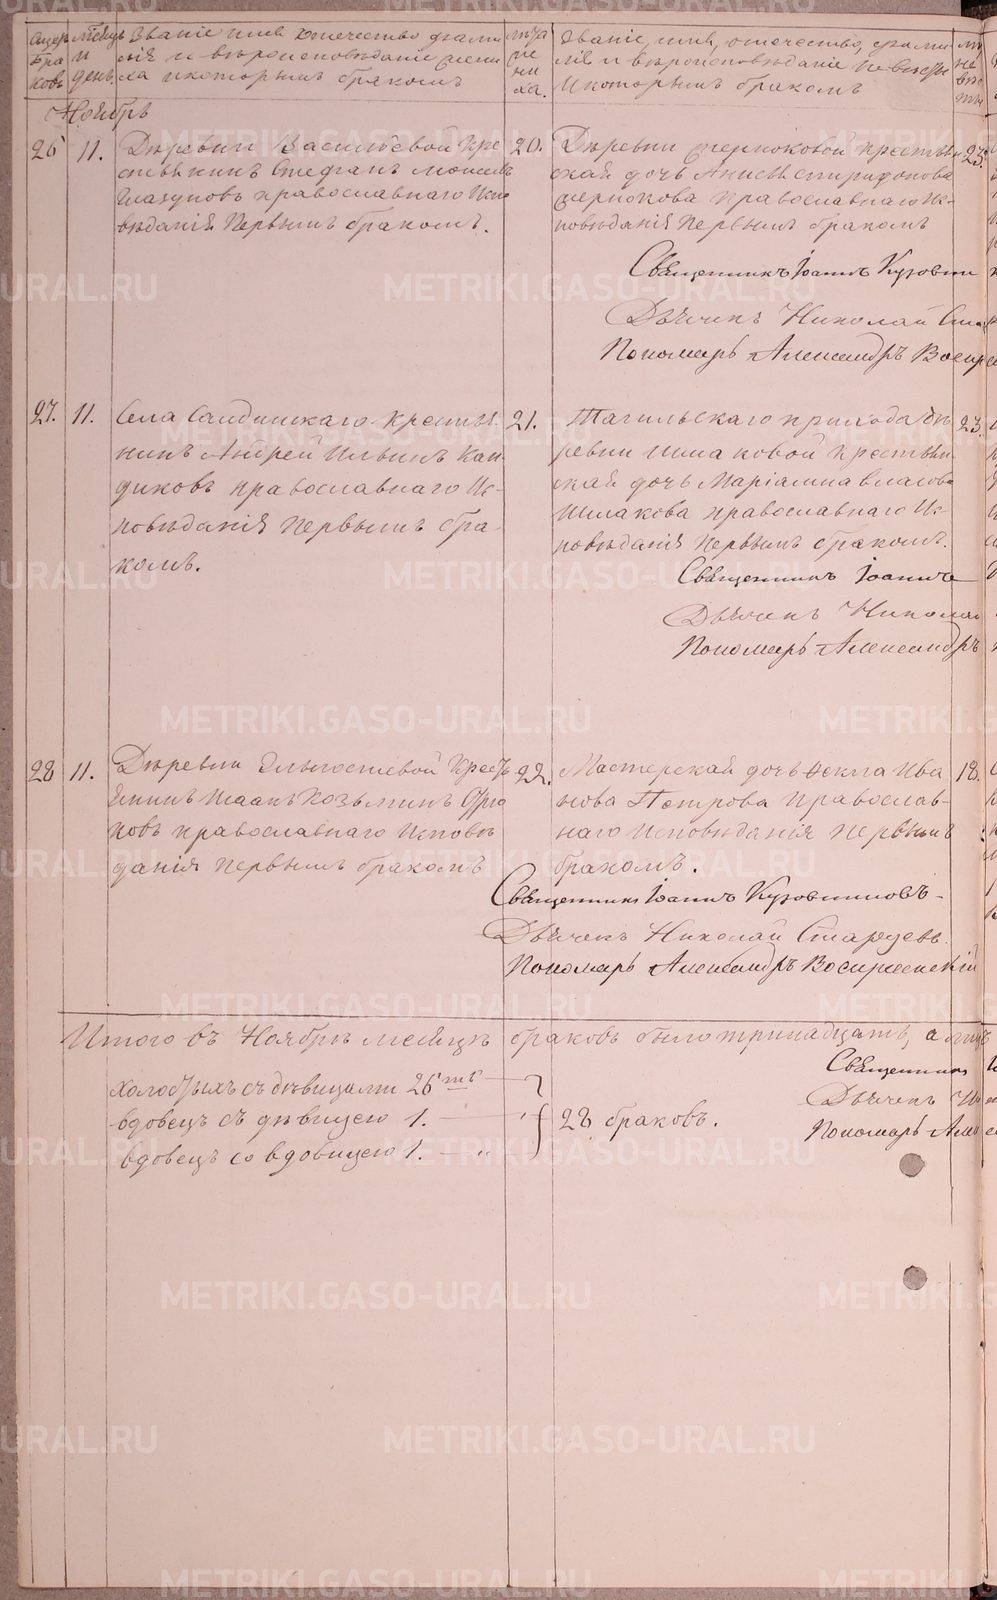 Счетъ браковъ
Мѣсяцъ и день
Званіе имя отечество фамилія и вѣроисповѣданіе жениха и которымъ бракомъ
лѣта жениха.
Званіе, имя, отечество, фамилія и вѣроисповѣданіе невѣсты и которымъ бракомъ
Ноябрь
26
11.
Деревни Васильевой кре
стьянинъ Стефанъ Моисеевъ
Глазуновъ православнаго Испо
вѣданія Первымъ бракомъ.
20.
Деревни Черноковой крестьян
ская дочь Анисья Спиридонова
православнаго Ис-
повѣданія Первымъ бракомъ
23
Священникъ Іоаннъ Кузовни
Дьячекъ Николай Ста
Пономарь Александръ Воскре
27.
11.
Села Салдинскаго крестья
нинъ Андрей Ильинъ
православнаго Ис-
повѣданія Первымъ бра
комъ.
21.
Тагильскаго прихода де
ревни Шмаковой крестьян
ская дочь Маріамна Власова
Шмакова православнаго Ис-
повѣданія Первымъ бракомъ.
23.
Священникъ Іоаннъ
Дьячекъ Николай
Пономарь Александръ
28
11.
Деревни Крест
янинъ Исаакъ Козьминъ
православнаго Исповѣ
данія Первымъ бракомъ
22.
Мастерская дочь Фекла Ива
нова Петрова Православ-
наго Исповѣданія Первымъ
бракомъ.
18.
Священникъ Іоаннъ Кузовниковъ
Дьячекъ Николай Старцевъ
Пономарь Александръ Воскресенскій
Итого въ Ноябрѣ мѣсяцѣ браковъ было тринадцать, а
Священникъ
Дьячекъ Ни
Пономарь Алек
холостыхъ съ дѣвицами 26ть
вдовецъ съ дѣвицею 1.
вдовецъ со вдовицею 1.
28 браковъ.
METRIKI.GASO-URAL.RU